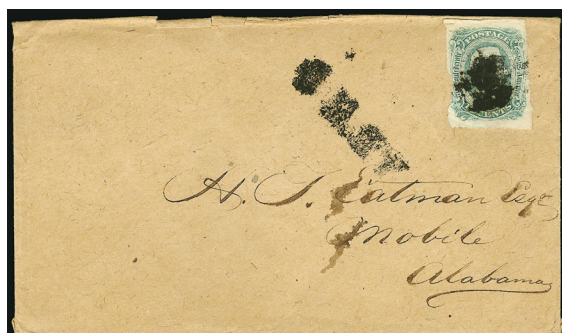 POSTAGE
CENTS
H. S. Eatman Esqr
Mobile
Alabama